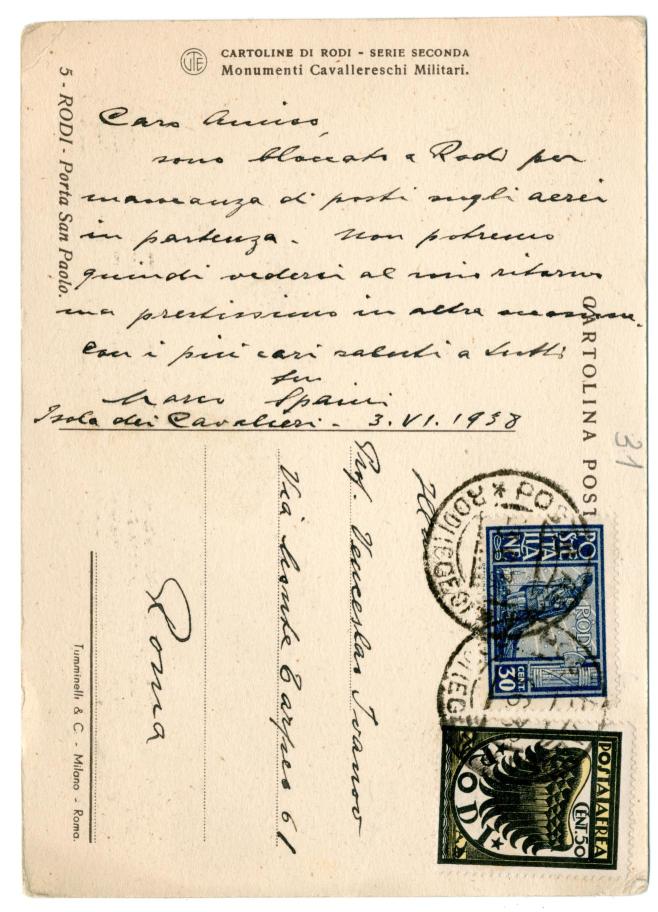 CARTOLINE DI RODI - SERIE SECONDA
Monumenti Cavallereschi Militari.
5 - RODI - Porta San Paolo.
Caro Amico,
sono bloccato a Rodi per
mancanza di posti sugli aerei
in partenza. Non potremo
quindi vederci al mio ritorno
ma prestissimo in altra
con i più cari saluti a tutti
Marco Spaini
Isola dei Cavalieri - 3.VI.1938
CARTOLINA POST
31
Prof. Venceslao Ivanov
Via Monte Tarpeo 61
Roma
Tumminelli & C. - Milano - Roma.
POSTE ITALIANE
RODI
30 CENT
POSTA AEREA
CENT. 50
RODI
RODI (EGEO) * POS